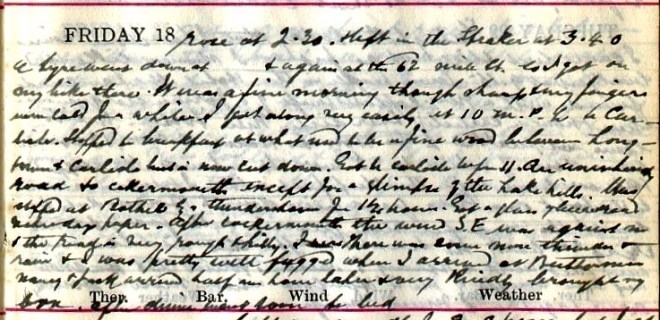 FRIDAY 18 Rose at 2.30. Left in the Speaker at 3.40
A tyre went down at & again at the 62 mile St. so I got on
my bike there. It was a fine morning though sharp & my fingers
were cold for a while & I got along very easily at 10 m.p.h. to Car-
lisle. Stopped to breakfast at what used to be a fine wood between Long-
town & Carlisle but is now cut down. Got to Carlisle up 11. An uninteresting
road to Cockermouth except for a glimpse of the lake hills. Was
stopped at Bothel by a thunderstorm for 1½ hours. Got a glass of
paper. After Cockermouth the wind S.E. was against me
& the road is very rough & hilly. There was some more thunder &
rain & I was pretty well fagged when I arrived at Buttermere
Nancy & Jack arrived half an hour later & very kindly brought my
Ther. Bar. Wind Weather
After dinner went soon to bed